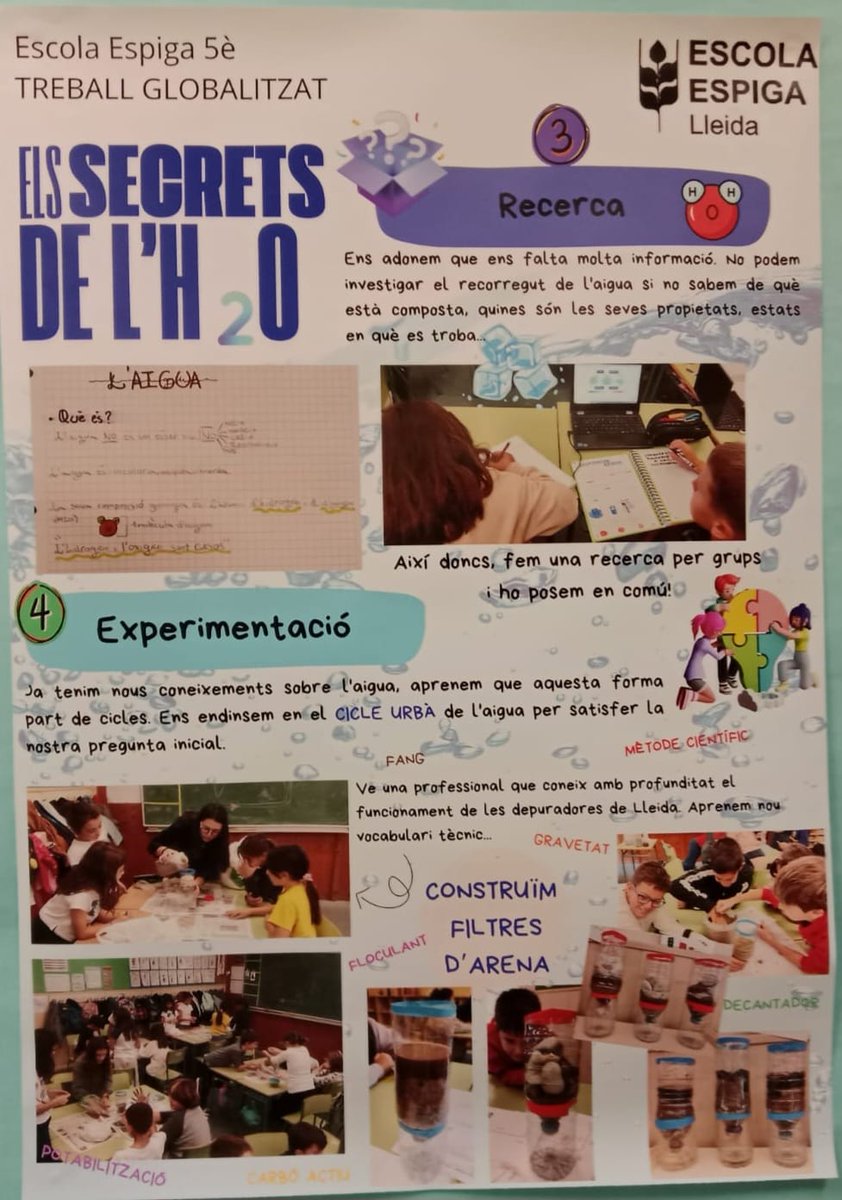 Escola Espiga 5è
TREBALL GLOBALITZAT
ESCOLA
ESPIGA
Lleida
ELS SECRETS
DE L'H2O
3
Recerca
H H
O
Ens adonem que ens falta molta informació. No podem
investigar el recorregut de l'aigua si no sabem de què
està composta, quines són les seves propietats, estats
en què es troba...
L'AIGUA
- Què és?
L'aigua NO és un
L'hidrogen i l'oxigen són GASOS
Així doncs, fem una recerca per grups
i ho posem en comú!
4
Experimentació
Ja tenim nous coneixements sobre l'aigua, aprenem que aquesta forma
part de cicles. Ens endinsem en el CICLE URBÀ de l'aigua per satisfer la
nostra pregunta inicial.
MÈTODE CIENTÍFIC
FANG
Ve una professional que coneix amb profunditat el
funcionament de les depuradores de Lleida. Aprenem nou
vocabulari tècnic...
GRAVETAT
CONSTRUÏM
FILTRES
D'ARENA
FLOCULANT
DECANTADOR
POTABILITZACIÓ
CARBÓ ACTIU